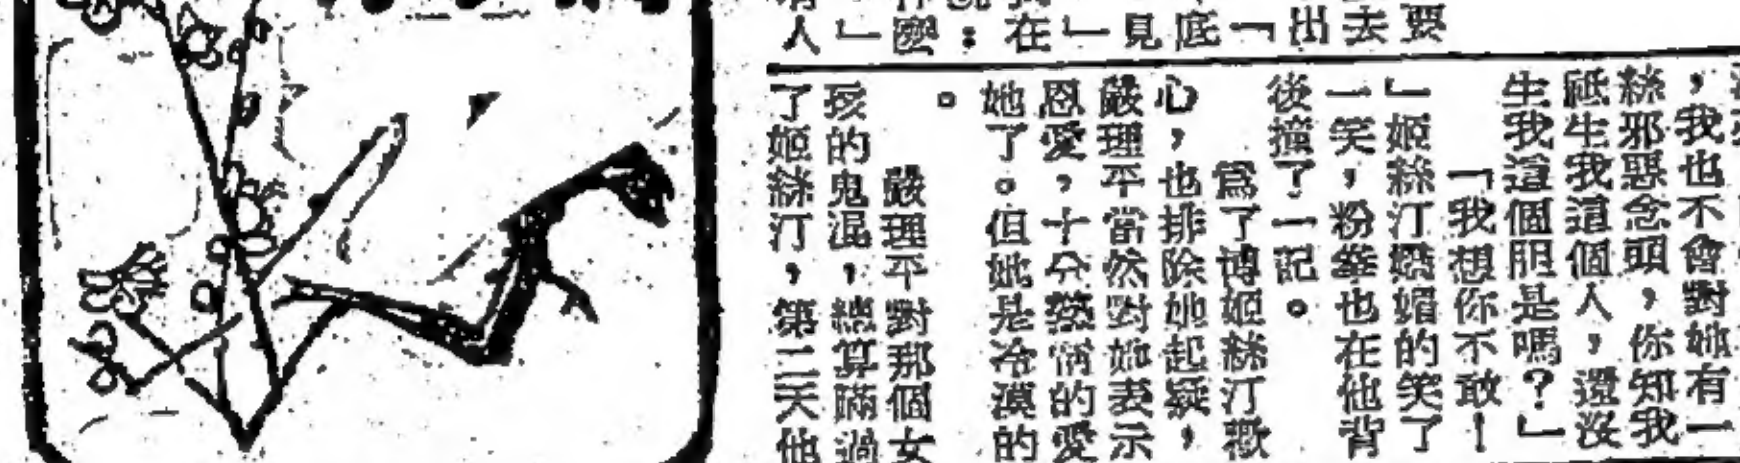 要
去
出
「
底
見
」
在
：
麼
」
人
，我也不會對她有一
絲邪惡念頭，你知我
祗生我這個人，還沒
生我這個胆是嗎？」
「我想你不敢！
」姬絲汀嬌媚的笑了
一笑，粉拳也在他背
後撞了一記。
爲了博姬絲汀歡
心，也排除她起疑，
嚴理平當然對她表示
恩愛，十分熱情的愛
她了。但她是冷漠的
。
嚴理平對那個女
孩的鬼混，總算瞞過
了姬絲汀，第二天他